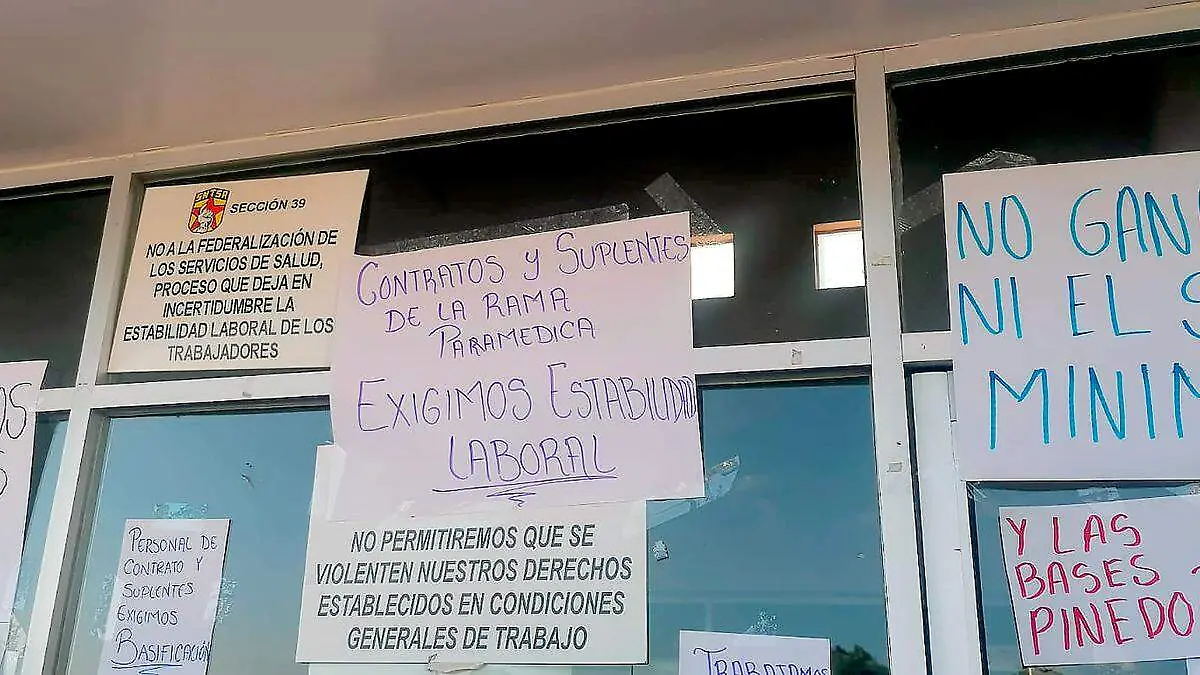 SNTSA
SECCIÓN 39
NO A LA FEDERALIZACIÓN DE
LOS SERVICIOS DE SALUD,
PROCESO QUE DEJA EN
INCERTIDUMBRE LA
ESTABILIDAD LABORAL DE LOS
TRABAJADORES
CONTRATOS Y SUPLENTES
DE LA RAMA
PARAMEDICA
EXIGIMOS ESTABILIDAD
LABORAL
NO
NI EL
PERSONAL DE
CONTRATO Y
SUPLENTES
EXIGIMOS
BASIFICACIÓN
NO PERMITIREMOS QUE SE
VIOLENTEN NUESTROS DERECHOS
ESTABLECIDOS EN CONDICIONES
GENERALES DE TRABAJO
TRABATAMOS
Y LAS
BASES
PINEDO